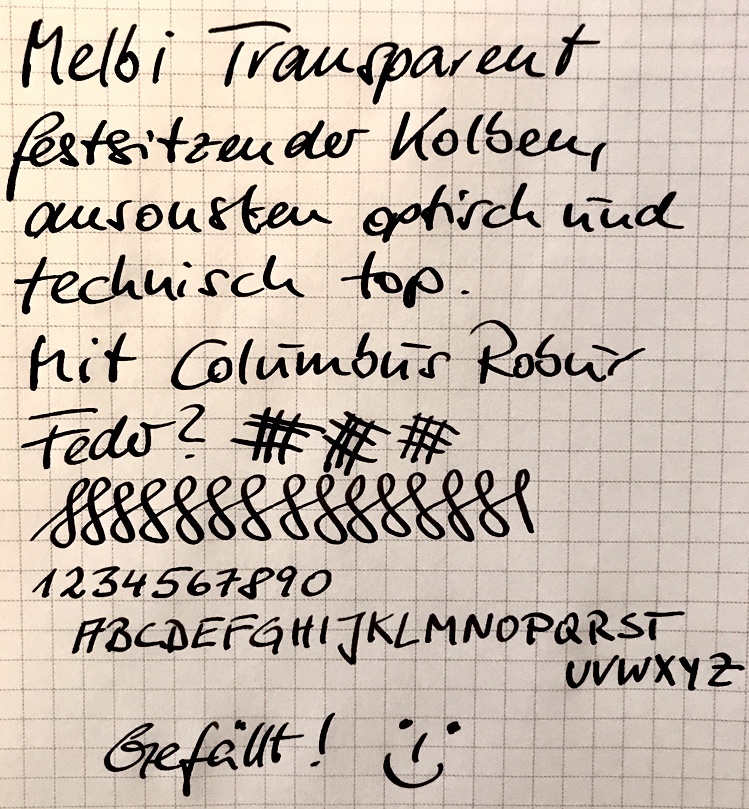 Melbi Transparent
festsitzender Kolben,
ansonsten optisch und
technisch top.
Mit Columbus Robur
Feder?
1234567890
ABCDEFGHIJKLMNOPQRST
UVWXYZ
Gefällt!